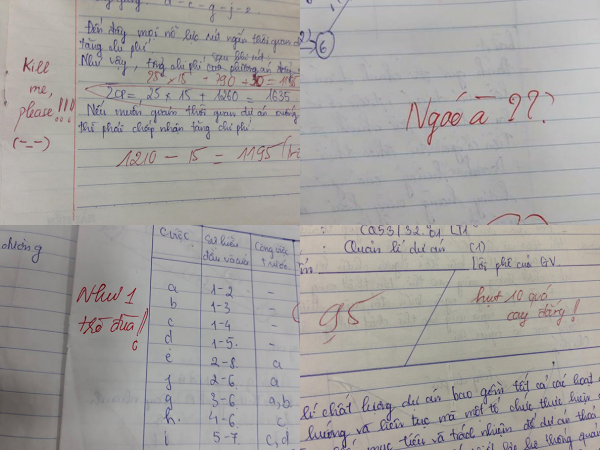 a - c - g - j - e.
Đến đây mọi nỗ lực rút ngắn thời gian
tăng chi phí.
Như vậy, tổng chi phí của phương án
25 × 15 + 790 + 30 = 1195
ZCP = 25 × 15 + 1260 = 1635
Nếu muốn giảm thời gian dự án xuống
thì phải chấp nhận tăng chi phí
1210 - 15 = 1195
Kill
me,
please!!!
(-_-)
6
Ngoó à ??
chương
Như 1
trò đùa!!
C.việc
Sự kiện
đầu và cuối
Công việc
trước
a 1-2 -
b 1-3 -
c 1-4 -
d 1-5 -
e 2-8 a
f 2-6 a
g 3-6 a,b
h 4-6 c
i 5-7 c,d
CQ53/32.01 LT1
Quản lí dự án (1)
Lời phê của GV
95
hụt 10 quá
cay đắng!
lí chất lượng dự án bao gồm tất cả các hoạt
hướng và liên tục mà một tổ chức thực hiện
mục tiêu và trách nhiệm để dự án thỏa